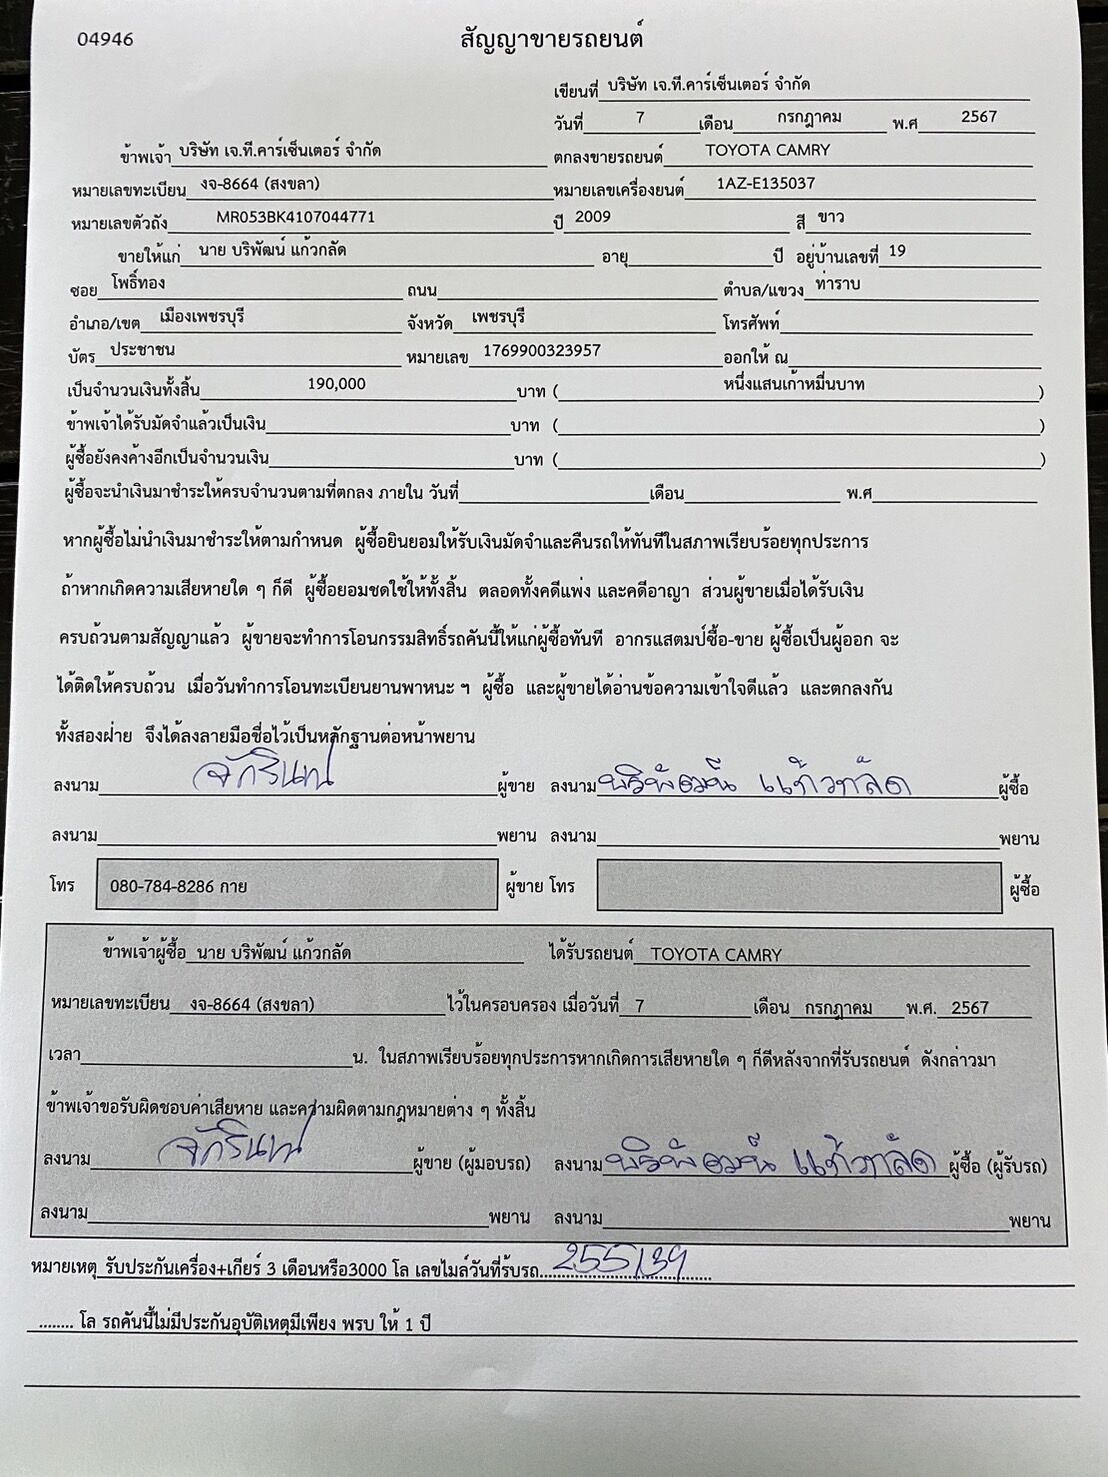 04946
สัญญาขายรถยนต์
เขียนที่ บริษัท เจ.ที.คาร์เซ็นเตอร์ จำกัด
วันที่ 7 เดือน กรกฎาคม พ.ศ 2567
ข้าพเจ้า บริษัท เจ.ที.คาร์เซ็นเตอร์ จำกัด ตกลงขายรถยนต์ TOYOTA CAMRY
หมายเลขทะเบียน งจ-8664 (สงขลา) หมายเลขเครื่องยนต์ 1AZ-E135037
หมายเลขตัวถัง MR053BK4107044771 ปี 2009 สี ขาว
ขายให้แก่ นาย บริพัฒน์ แก้วกลัด อายุ ปี อยู่บ้านเลขที่ 19
ซอย โพธิ์ทอง ถนน ตำบล/แขวง ท่าราบ
อำเภอ/เขต เมืองเพชรบุรี จังหวัด เพชรบุรี โทรศัพท์
บัตร ประชาชน หมายเลข 1769900323957 ออกให้ ณ
เป็นจำนวนเงินทั้งสิ้น 190,000 บาท ( หนึ่งแสนเก้าหมื่นบาท )
ข้าพเจ้าได้รับมัดจำแล้วเป็นเงิน บาท ( )
ผู้ซื้อยังคงค้างอีกเป็นจำนวนเงิน บาท ( )
ผู้ซื้อจะนำเงินมาชำระให้ครบจำนวนตามที่ตกลง ภายใน วันที่ เดือน พ.ศ
หากผู้ซื้อไม่นำเงินมาชำระให้ตามกำหนด ผู้ซื้อยินยอมให้รับเงินมัดจำและคืนรถให้ทันทีในสภาพเรียบร้อยทุกประการ
ถ้าหากเกิดความเสียหายใด ๆ ก็ดี ผู้ซื้อยอมชดใช้ให้ทั้งสิ้น ตลอดทั้งคดีแพ่ง และคดีอาญา ส่วนผู้ขายเมื่อได้รับเงิน
ครบถ้วนตามสัญญาแล้ว ผู้ขายจะทำการโอนกรรมสิทธิ์รถคันนี้ให้แก่ผู้ซื้อทันที อากรแสตมป์ซื้อ-ขาย ผู้ซื้อเป็นผู้ออก จะ
ได้ติดให้ครบถ้วน เมื่อวันทำการโอนทะเบียนยานพาหนะ ฯ ผู้ซื้อ และผู้ขายได้อ่านข้อความเข้าใจดีแล้ว และตกลงกัน
ทั้งสองฝ่าย จึงได้ลงลายมือชื่อไว้เป็นหลักฐานต่อหน้าพยาน
ลงนาม จักรินทน์ ผู้ขาย ลงนาม บริพัฒน์ แก้วกลัด ผู้ซื้อ
ลงนาม พยาน ลงนาม พยาน
โทร 080-784-8286 กาย ผู้ขาย โทร ผู้ซื้อ
ข้าพเจ้าผู้ซื้อ นาย บริพัฒน์ แก้วกลัด ได้รับรถยนต์ TOYOTA CAMRY
หมายเลขทะเบียน งจ-8664 (สงขลา) ไว้ในครอบครอง เมื่อวันที่ 7 เดือน กรกฎาคม พ.ศ. 2567
เวลา น. ในสภาพเรียบร้อยทุกประการหากเกิดการเสียหายใด ๆ ก็ดีหลังจากที่รับรถยนต์ ดังกล่าวมา
ข้าพเจ้าขอรับผิดชอบค่าเสียหาย และความผิดตามกฎหมายต่าง ๆ ทั้งสิ้น
ลงนาม จักรินทน์ ผู้ขาย (ผู้มอบรถ) ลงนาม บริพัฒน์ แก้วกลัด ผู้ซื้อ (ผู้รับรถ)
ลงนาม พยาน ลงนาม พยาน
หมายเหตุ รับประกันเครื่อง+เกียร์ 3 เดือนหรือ3000 โล เลขไมล์วันที่รับรถ 255139
........ โล รถคันนี้ไม่มีประกันอุบัติเหตุมีเพียง พรบ ให้ 1 ปี